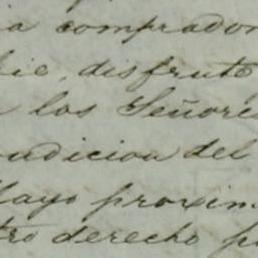 a comprador
bie, disfrute
a los Señores
udicion del
Mayo proxim
tro derecho p